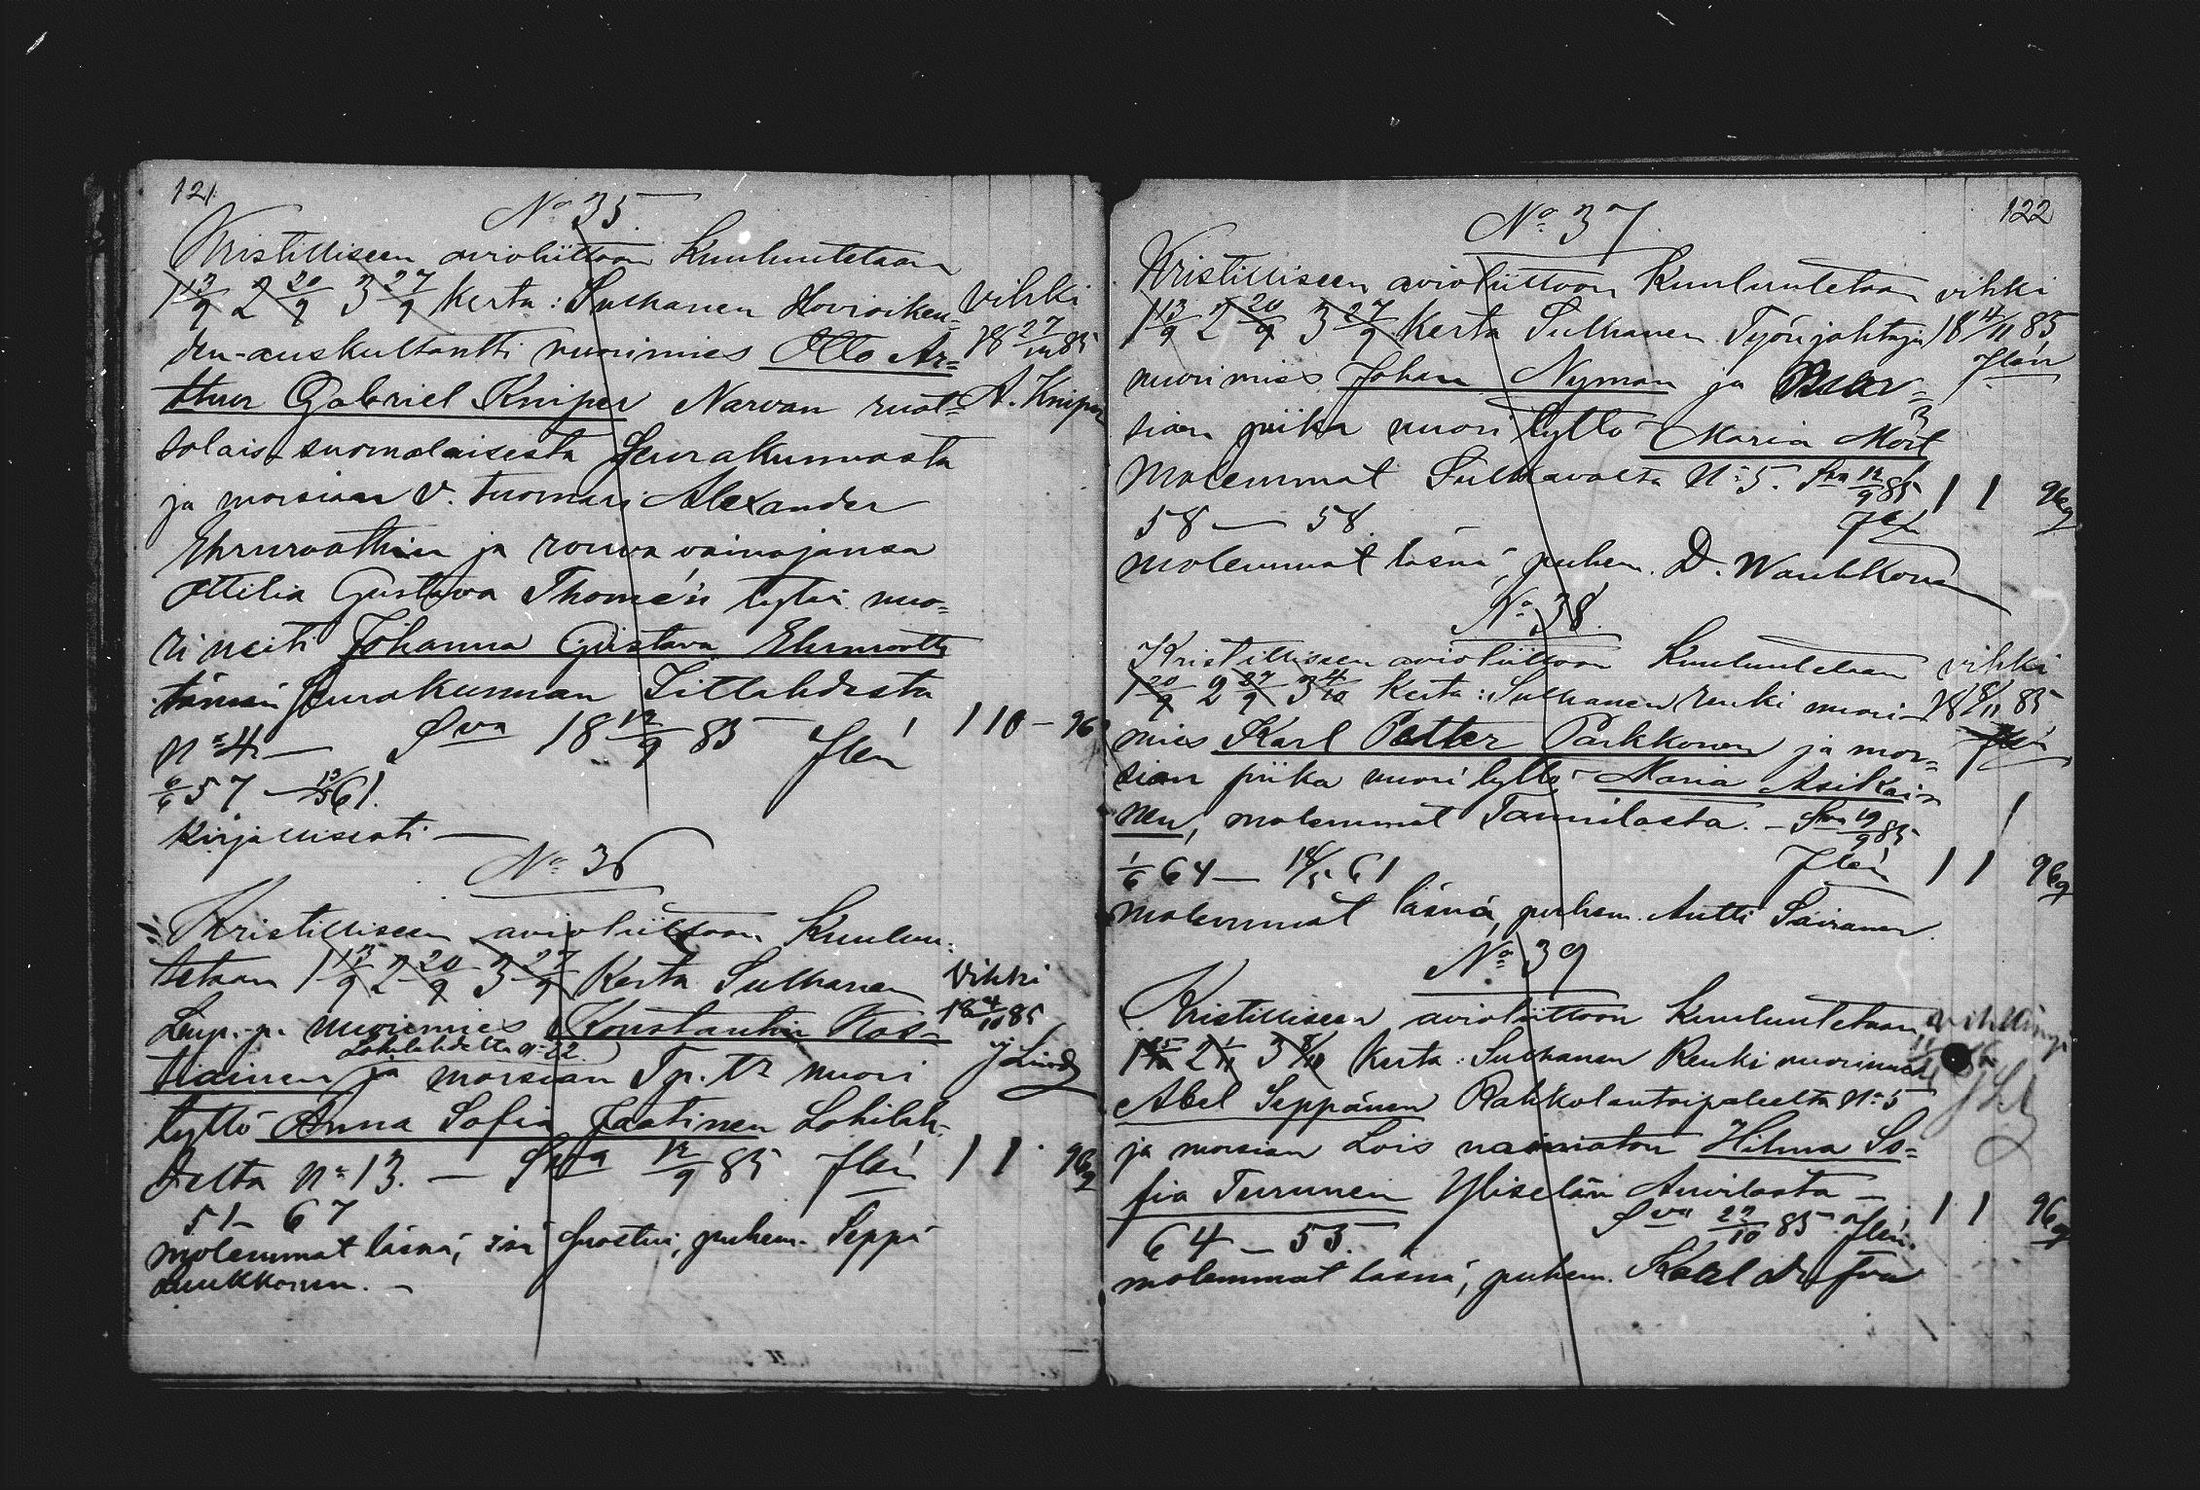 121.
No 35.
Kristilliseen avioliittoon Kuulutetaan
1 13/9 2 20/9 3 27/9 Kerta: Sulhanen Hovioikeu=
den-auskultantti nuorimies Otto Ar=
thur Gabriel Kniper Narvan ruot=
solais-suomalaisesta Seurakunnasta
ja morsian v. tuomari Alexander
Ehrnroothin ja rouva vainajansa
Ottilia Gustava Thomén tytär nuo=
ri neiti Johanna Gustava Ehrnrooth
tämän Seurakunnan Iitlahdesta
No 4 — Sva 18 12/9 85 Flén
6/6 57 — 13/5 61.
Kirjallisesti —
vihki
18 27/ 85
A. Kniper
1 10 — 96
No 36
Kristilliseen avioliittoon Kuulu=
tetaan 1 13/9 2 20/9 3 27/9 Kerta Sulhanen
Lamp.p. nuorimies Konstantin Kos=
tiainen Lohilahdelta No 22 ja morsian Tp. tr nuori
tyttö Anna Sofia Jaatinen Lohilah=
delta No 13. — Sva 12/9 85 Flén
51 — 67
molemmat läsnä, isä suostui, puhem. Seppä
Luukkonen. —
Vihki
18 4/10 85
1 1 96
122
No 37
Kristilliseen avioliittoon Kuulutetaan
1 13/9 2 20/9 3 27/9 Kerta Sulhanen Työnjohtaja
nuorimies Johan Nyman ja Mor=
sian piika nuori tyttö Maria Mört
molemmat Sulkavalta No 5. Sva 12/9 85
58 — 58 Flén
molemmat läsnä, puhem. D. Wauhkonen
vihki
18 4/11 85
Flén
1 1 96
No 38.
Kristilliseen avioliittoon Kuulutetaan
1 20/9 2 27/9 3 4/10 Kerta: Sulhanen renki nuori
mies Karl Petter Parkkonen ja mor=
sian piika nuori tyttö Maria Asikai=
nen, molemmat Tannilasta. — Sva 19/9 85
1/6 64 — 18/5 61 Flén
molemmat läsnä, puhem. Antti Sairanen.
vihki
18 8/11 85
Flén
1 1 96
No 39
Kristilliseen avioliittoon Kuulutetaan
1 25/10 2 1/11 3 8/11 Kerta: Sulhanen Renki nuorimies
Abel Seppänen Rahkolantaipaleelta No 5
ja morsian Lois naimaton Hilma So=
fia Turunen Yliselän Anvilasta —
64 — 53. Sva 22/10 85. Flén.
molemmat läsnä, puhem. Karl
1 1 96